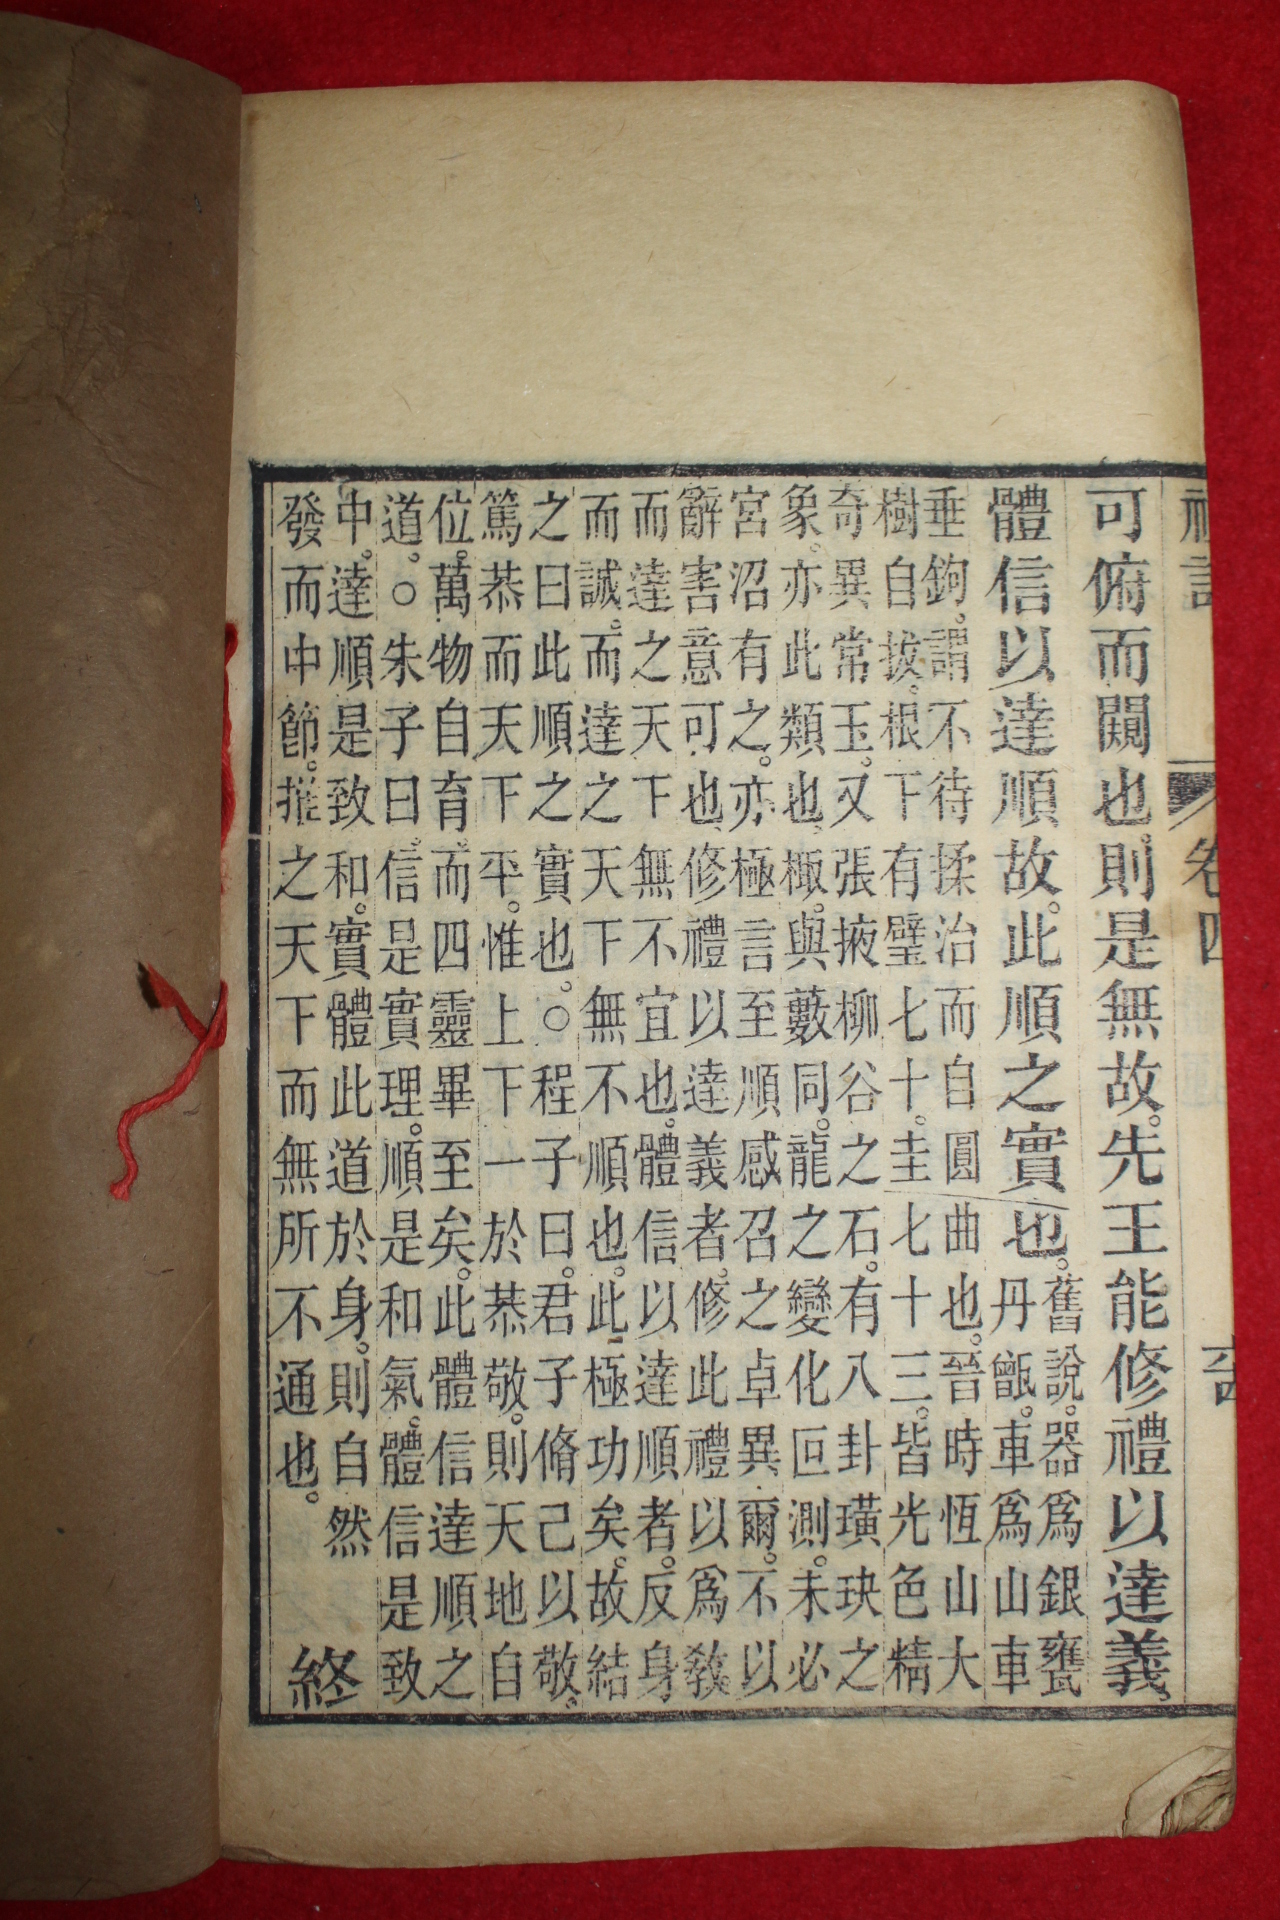 禮記 卷四
可俯而闚也。則是無故。先王能修禮以達義。
體信以達順故。此順之實也。
舊說。器爲銀甕
丹甑。車爲山車
垂鉤。謂不待揉治而自圓曲也。晉時恆山大
樹自拔。根下有璧七十。圭七十三。皆光色精
奇異常玉。又張掖柳谷之石。有八卦璜玦之
象。亦此類也。棷。與藪同。龍之變化叵測。未必
宮沼有之。亦極言至順感召之卓異爾。不以
辭害意可也。修禮以達義者。修此禮以爲敎。
而達之天下無不宜也。體信以達順者。反身
而誠。而達之天下無不順也。此極功矣。故結
之曰此順之實也。○程子曰。君子脩己以敬。
篤恭而天下平。惟上下一於恭敬。則天地自
位。萬物自育。而四靈畢至矣。此體信達順之
道。○朱子曰。信是實理。順是和氣。體信是致
中。達順是致和。實體此道於身。則自然
發而中節。推之天下而無所不通也。
終